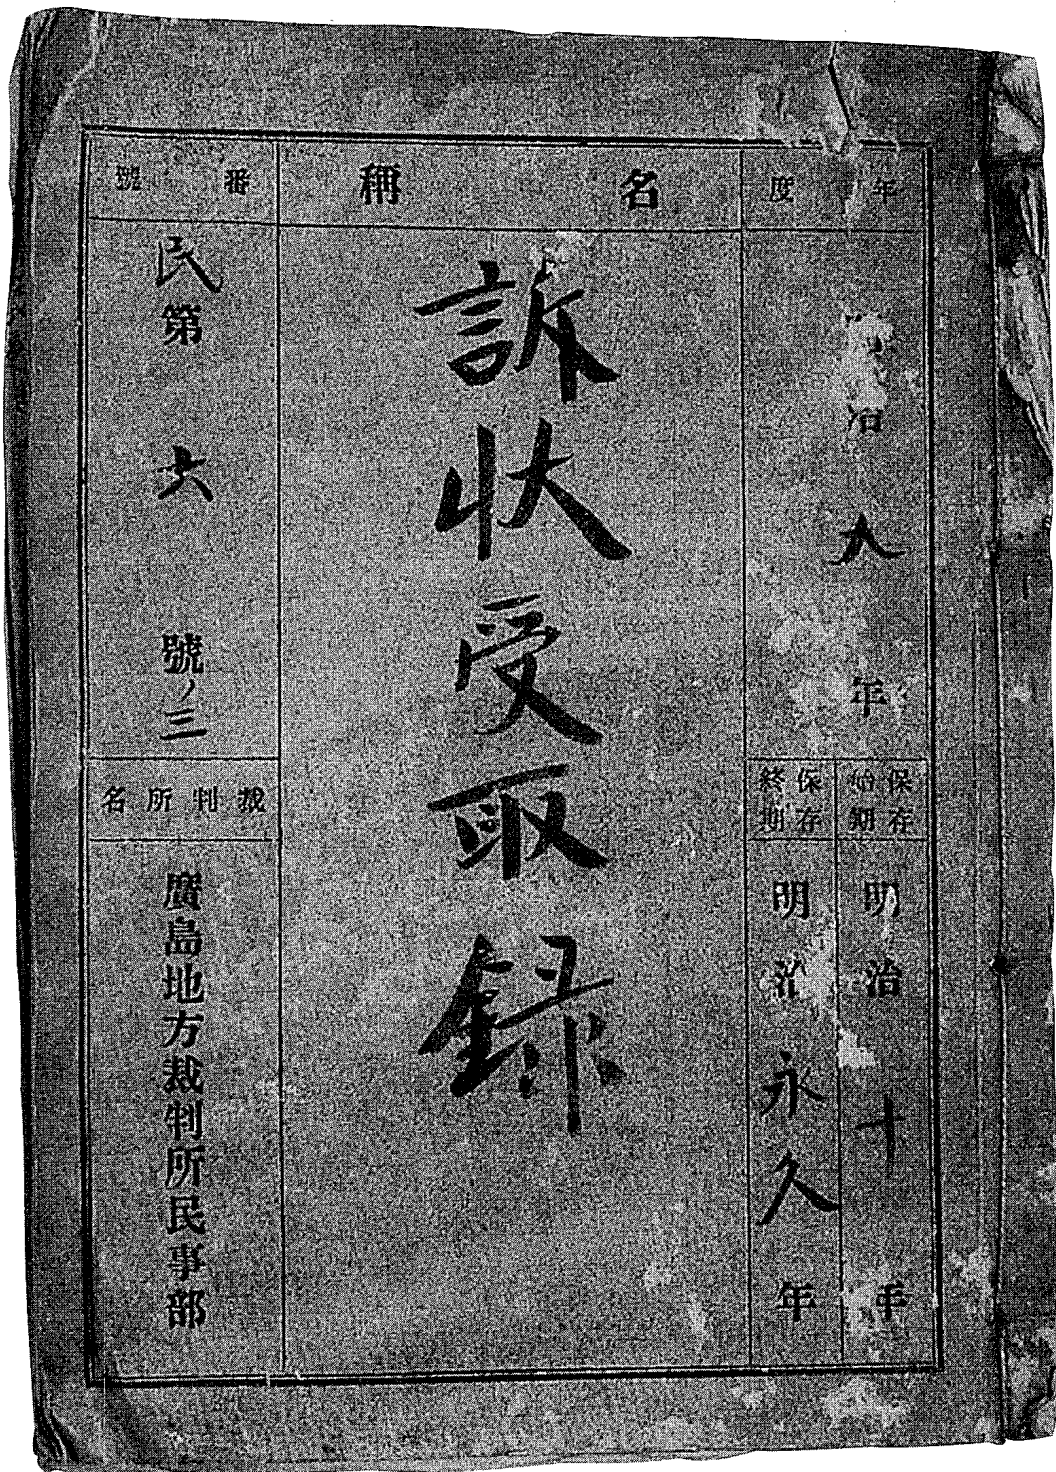 年度
治九年
保存始期
明治十年
保存終期
明治永久年
名稱
訴状受取録
番號
民第六號ノ三
裁判所名
廣島地方裁判所民事部